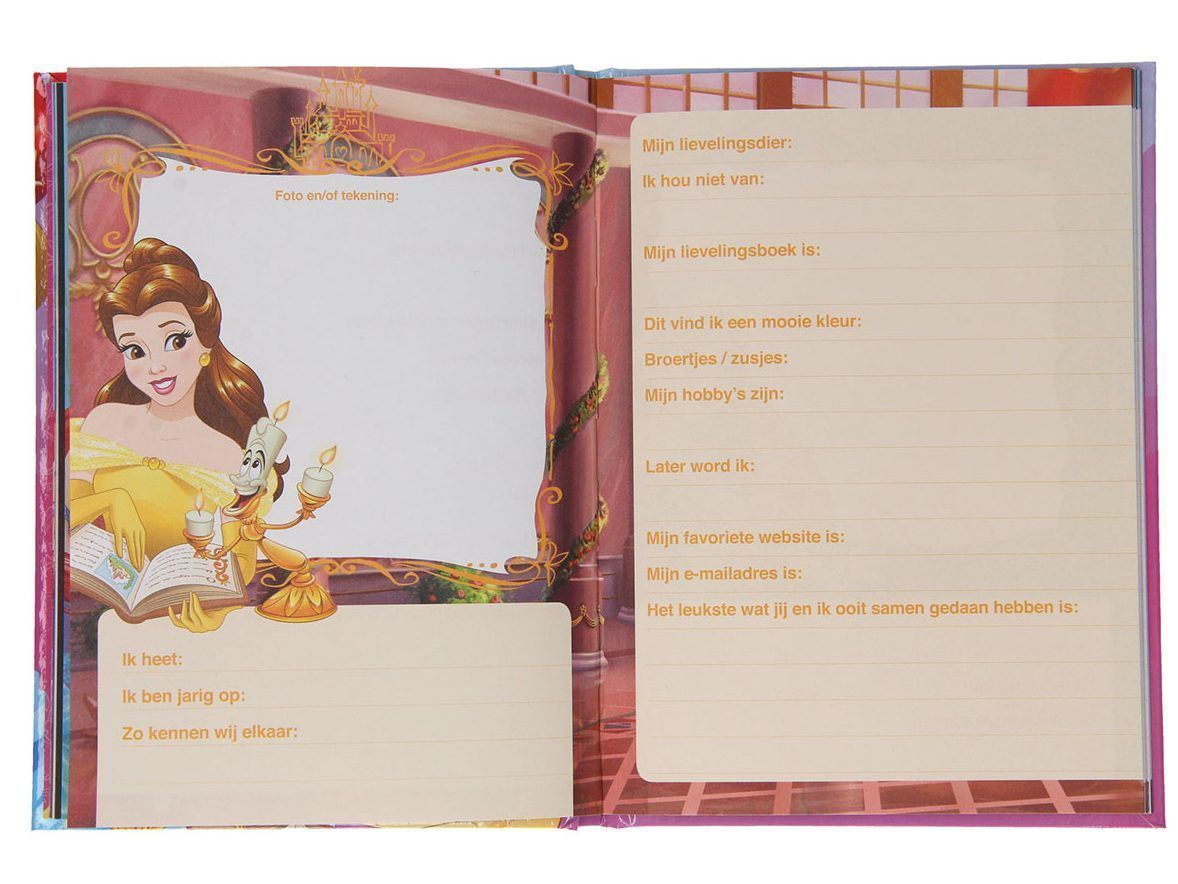 Foto en/of tekening:
Ik heet:
Ik ben jarig op:
Zo kennen wij elkaar:
Mijn lievelingsdier:
Ik hou niet van:
Mijn lievelingsboek is:
Dit vind ik een mooie kleur:
Broertjes / zusjes:
Mijn hobby's zijn:
Later word ik:
Mijn favoriete website is:
Mijn e-mailadres is:
Het leukste wat jij en ik ooit samen gedaan hebben is: